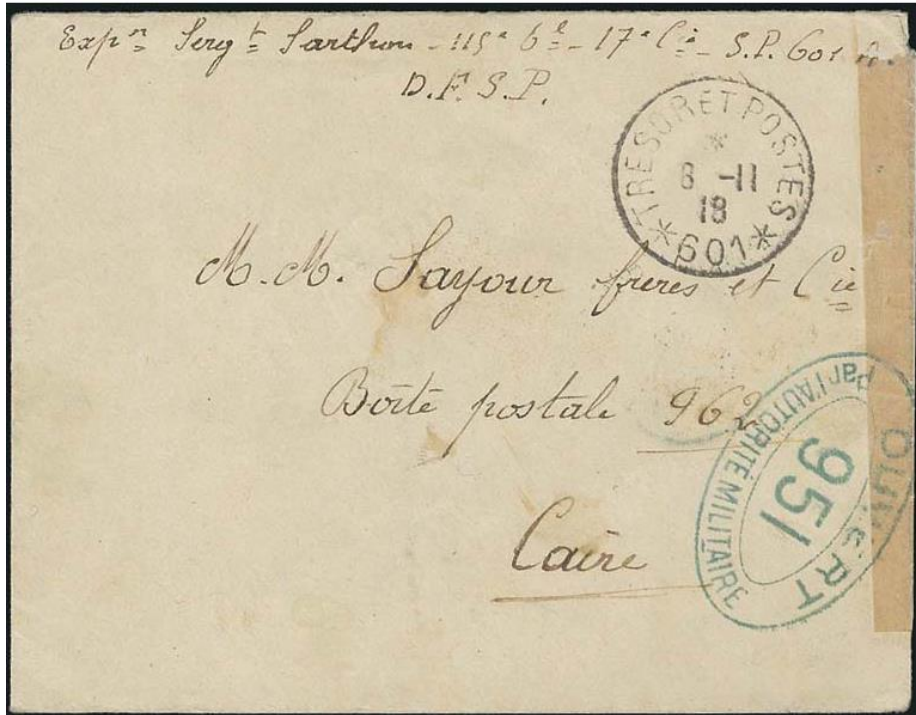 Expn Sergt Sarthou - 115e Bt - 17e Cie - S.P. 601 A.
D.F.S.P.
TRESOR ET POSTES
8 -11
18
*601*
M.M. Sayour frères et Cie
Boîte postale 962
Caire
OUVERT
par l'AUTORITÉ MILITAIRE
951